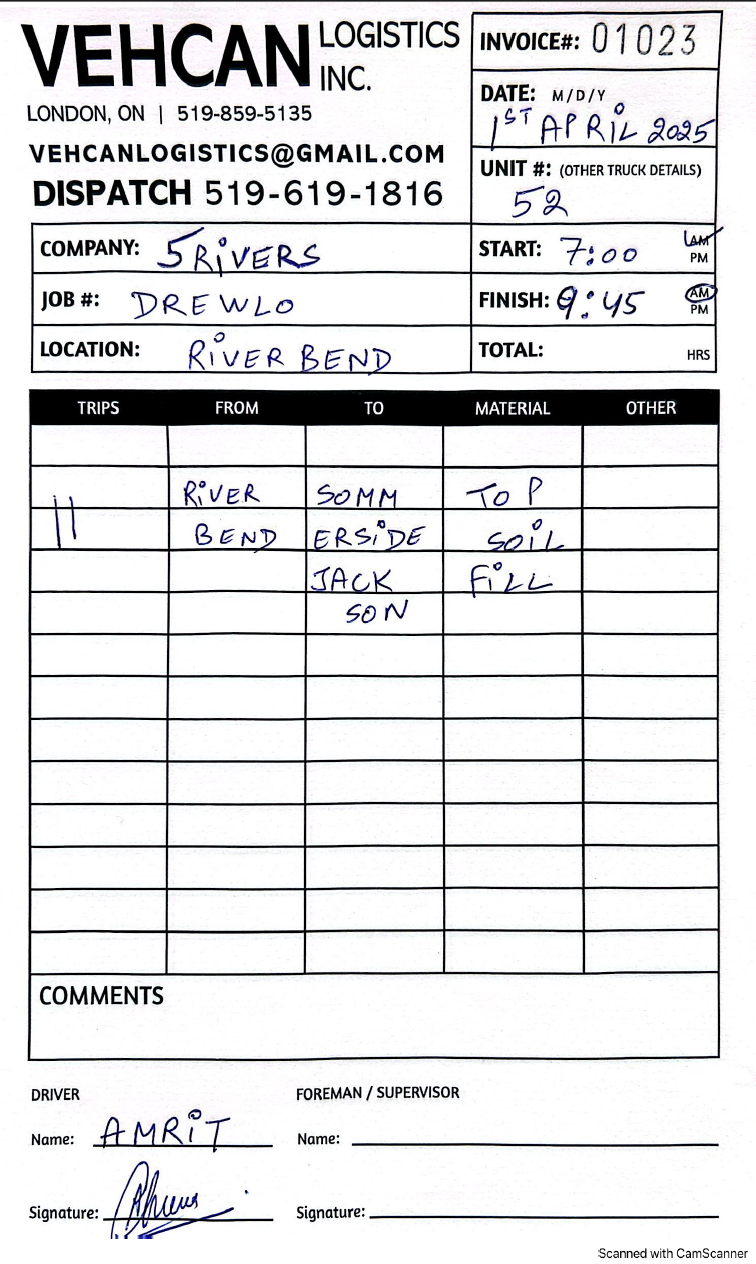 VEHCAN LOGISTICS INC.
LONDON, ON | 519-859-5135
VEHCANLOGISTICS@GMAIL.COM
DISPATCH 519-619-1816
INVOICE#: 01023
DATE: M/D/Y
1ST APRIL 2025
UNIT #: (OTHER TRUCK DETAILS)
52
COMPANY: 5 RIVERS
START: 7:00 AM PM
JOB #: DREWLO
FINISH: 9:45 AM PM
LOCATION: RIVER BEND
TOTAL: HRS
TRIPS FROM TO MATERIAL OTHER
RIVER SOMM TOP
|| BEND ERSIDE SOIL
JACK FILL
SON
COMMENTS
DRIVER
Name: AMRIT
Signature:
FOREMAN / SUPERVISOR
Name:
Signature:
Scanned with CamScanner